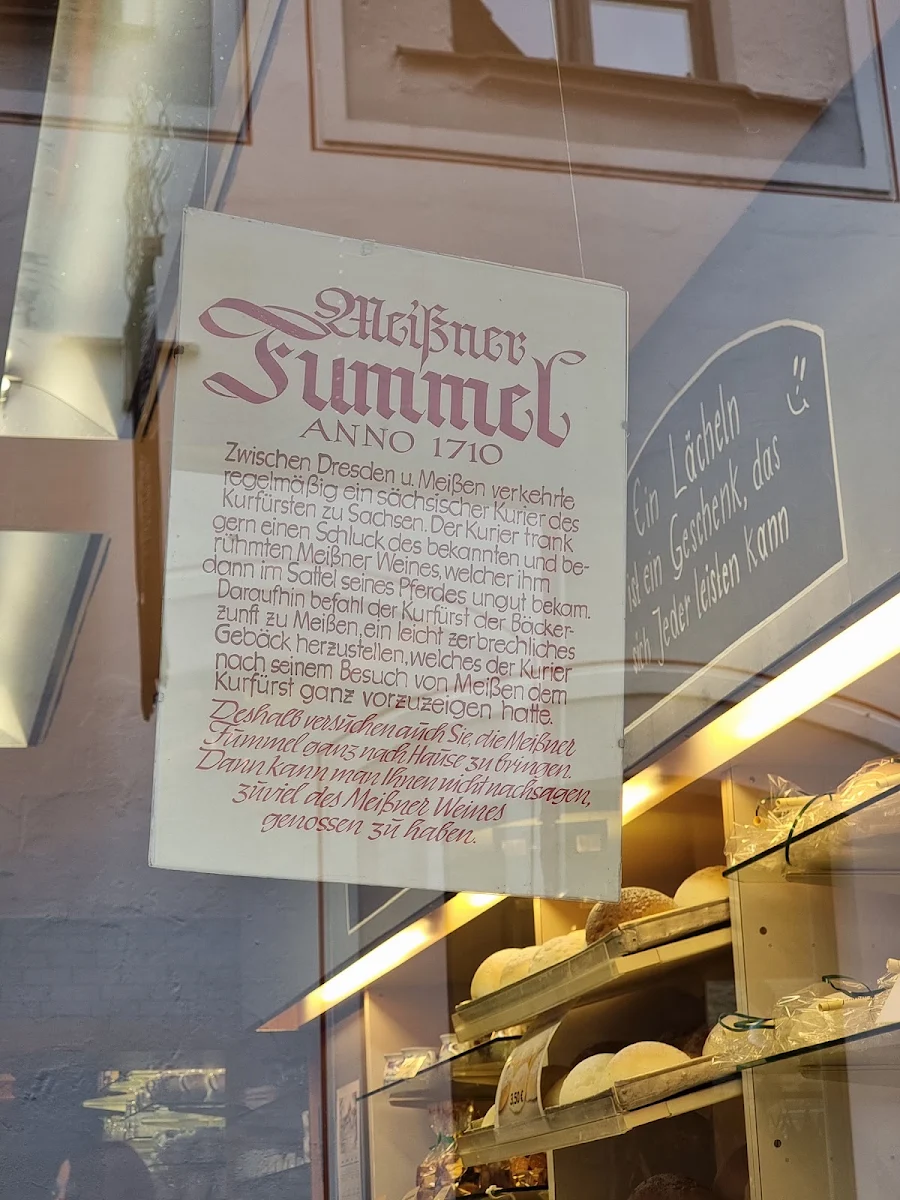 Meißner
Fummel
ANNO 1710
Zwischen Dresden u. Meißen verkehrte
regelmäßig ein sächsischer Kurier des
Kurfürsten zu Sachsen. Der Kurier trank
gern einen Schluck des bekannten und be-
rühmten Meißner Weines, welcher ihm
dann im Sattel seines Pferdes ungut bekam.
Daraufhin befahl der Kurfürst der Bäcker-
zunft zu Meißen, ein leicht zerbrechliches
Gebäck herzustellen, welches der Kurier
nach seinem Besuch von Meißen dem
Kurfürst ganz vorzuzeigen hatte.
Deshalb versuchen auch Sie, die Meißner
Fummel ganz nach Hause zu bringen.
Dann kann man Ihnen nicht nachsagen,
zuviel des Meißner Weines
genossen zu haben.
Ein Lächeln
ist ein Geschenk, das
sich Jeder leisten kann
3,50 €